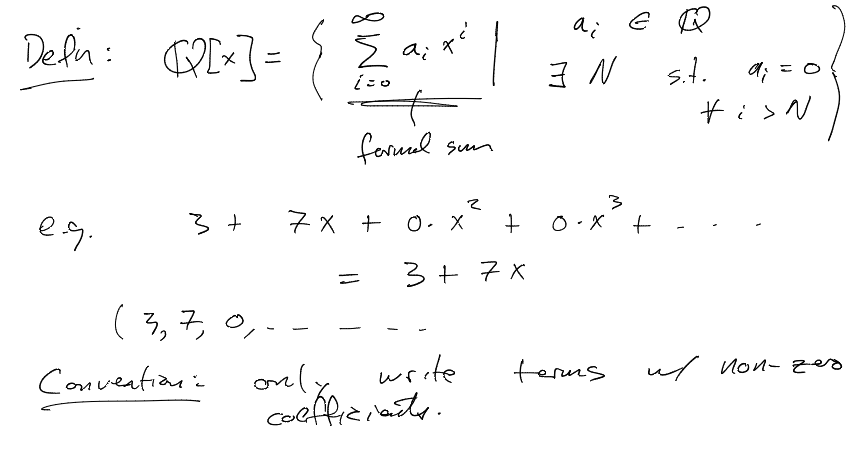 Defn: ℚ[x] = { ∑_{i=0}^{∞} a_i x^i | a_i ∈ ℚ
∃ N s.t. a_i = 0 ∀ i > N }
formal sum
e.g. 3 + 7x + 0·x² + 0·x³ + - - -
= 3 + 7x
(3, 7, 0, - - - - -
Convention: only write terms w/ non-zero
coefficients.